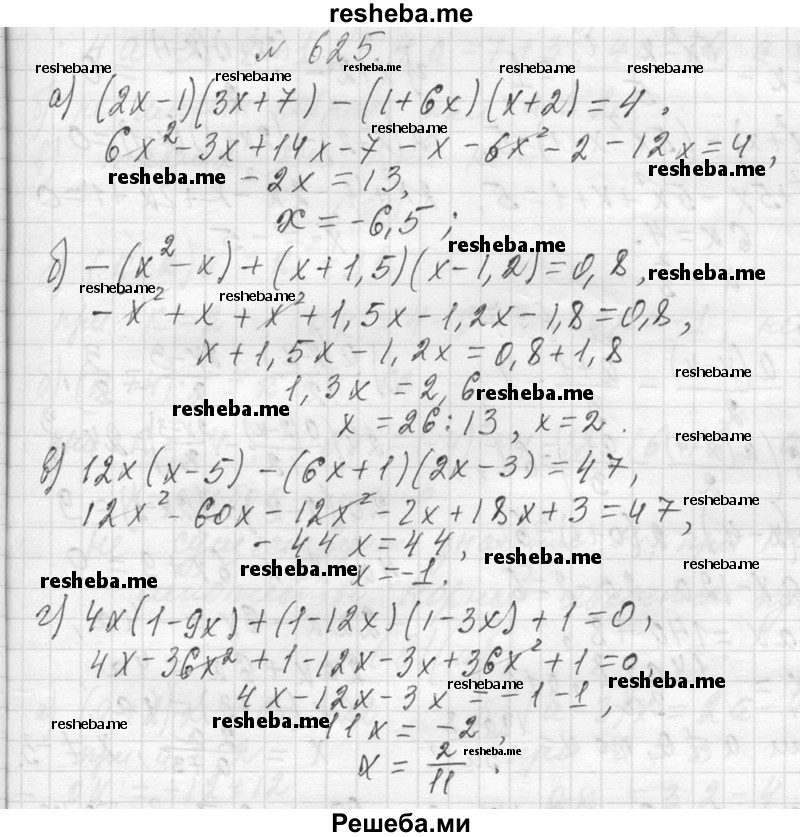 resheba.me
№ 625.
resheba.me resheba.me resheba.me resheba.me
а) (2x-1)(3x+7) - (1+6x)(x+2) = 4,
resheba.me
6x² - 3x + 14x - 7 - x - 6x² - 2 - 12x = 4,
resheba.me resheba.me
- 2x = 13,
x = -6,5;
resheba.me
б) - (x² - x) + (x+1,5)(x-1,2) = 0,8,
resheba.me
resheba.me resheba.me
- x² + x + x² + 1,5x - 1,2x - 1,8 = 0,8,
x + 1,5x - 1,2x = 0,8 + 1,8
resheba.me
1,3x = 2,6
resheba.me
resheba.me
x = 26 : 13, x = 2.
resheba.me
в) 12x(x-5) - (6x+1)(2x-3) = 47,
resheba.me
12x² - 60x - 12x² - 2x + 18x + 3 = 47,
- 44x = 44,
resheba.me resheba.me
x = -1.
resheba.me resheba.me
г) 4x(1-9x) + (1-12x)(1-3x) + 1 = 0,
4x - 36x² + 1 - 12x - 3x + 36x² + 1 = 0
resheba.me resheba.me
4x - 12x - 3x = -1 - 1,
resheba.me resheba.me
- 11x = -2,
resheba.me
x = 2/11.
Решеба.ми